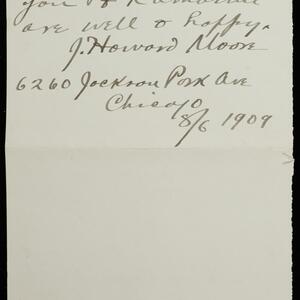 you &
are well & happy.
J. Howard Moore
6260 Jackson Park Ave
Chicago
8/6 1909